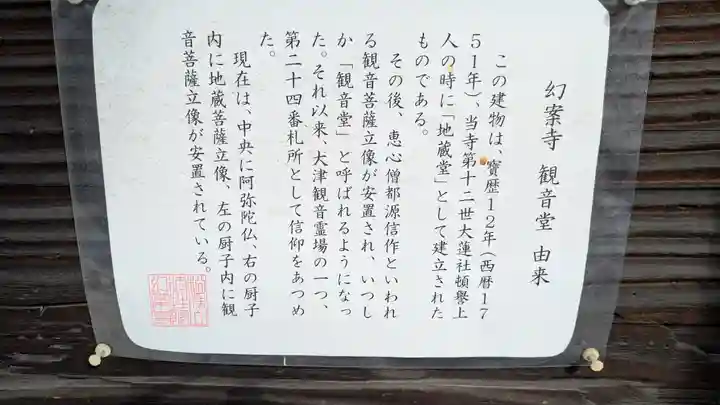 幻案寺 観音堂 由来
この建物は、寶暦12年(西暦17
51年)、当寺第十二世大蓮社頓譽上
人の時に「地蔵堂」として建立された
ものである。
その後、恵心僧都源信作といわれ
る観音菩薩立像が安置され、いつし
か「観音堂」と呼ばれるようになっ
た。それ以来、大津観音霊場の一つ、
第二十四番札所として信仰をあつめ
た。
現在は、中央に阿弥陀仏、右の厨子
内に地蔵菩薩立像、左の厨子内に観
音菩薩立像が安置されている。